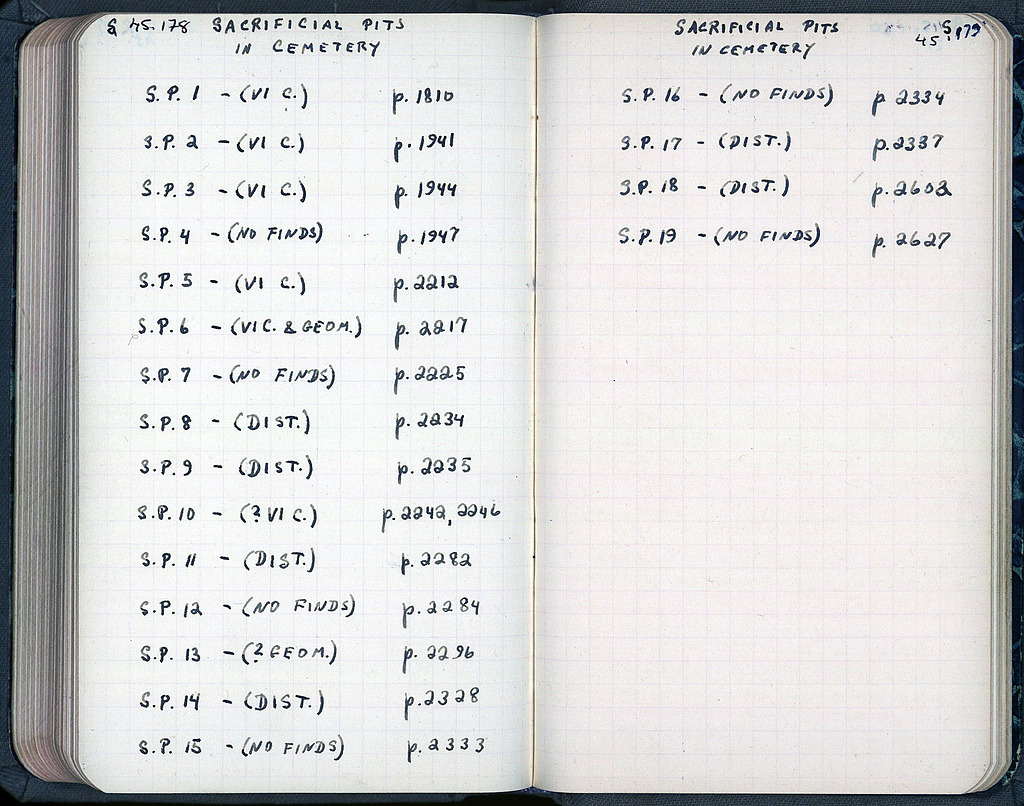 S 45.178 SACRIFICIAL PITS
IN CEMETERY
S.P. 1 - (VI C.) p. 1810
S.P. 2 - (VI C.) p. 1941
S.P. 3 - (VI C.) p. 1944
S.P. 4 - (NO FINDS) p. 1947
S.P. 5 - (VI C.) p. 2212
S.P. 6 - (VI C. & GEOM.) p. 2217
S.P. 7 - (NO FINDS) p. 2225
S.P. 8 - (DIST.) p. 2234
S.P. 9 - (DIST.) p. 2235
S.P. 10 - (? VI C.) p. 2242, 2246
S.P. 11 - (DIST.) p. 2282
S.P. 12 - (NO FINDS) p. 2284
S.P. 13 - (? GEOM.) p. 2296
S.P. 14 - (DIST.) p. 2328
S.P. 15 - (NO FINDS) p. 2333
SACRIFICIAL PITS S
IN CEMETERY 45.179
S.P. 16 - (NO FINDS) p 2334
S.P. 17 - (DIST.) p. 2337
S.P. 18 - (DIST.) p. 2602
S.P. 19 - (NO FINDS) p. 2627